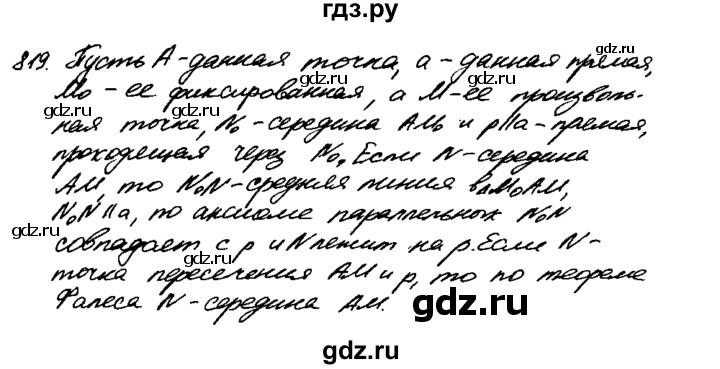 гдз.ру
819. Пусть А-данная точка, а-данная прямая,
М₀-ее фиксированная, а М-ее произволь-
ная точка, N₀-середина АМ₀ и p||а-прямая,
проходящая через N₀. Если N-середина
АМ, то N₀N-средняя линия в △М₀АМ,
N₀N||а, по аксиоме параллельных N₀N
совпадает с p и N лежит на p. Если N-
точка пересечения АМ и p, то по теореме
Фалеса N-середина АМ.
gdz.ru
gdz.ru
gdz.ru
gdz.ru
gdz.ru
gdz.ru
gdz.ru
gdz.ru